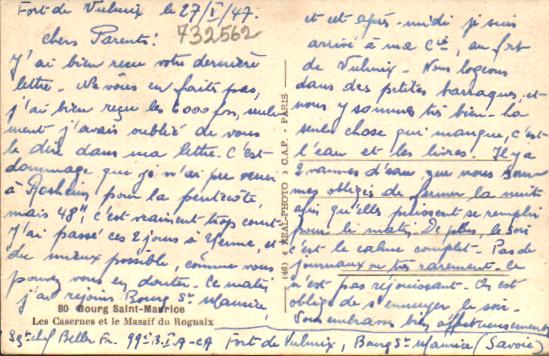 Fort de Vulmix le 27/I/47.
732562
Chers Parents!
J'ai bien reçu votre dernière
lettre. Ne vous en faites pas,
j'ai bien reçu les 6000 frs, seule
ment j'avais oublié de vous
le dire dans ma lettre. C'est
dommage que je n'ai pu venir
à Rosheim pour la pentecôte,
mais 48h c'est vraiment trop court
J'ai passé ces 2 jours à Yenne, et
du mieux possible, comme vous
pouvez vous en douter. Ce matin
j'ai rejoins Bourg St Maurice,
80 Bourg Saint-Maurice
Les Casernes et le Massif du Rognaix
(46) REAL-PHOTO C.A.P. - PARIS
et cet après-midi je suis
arrivé à ma Cie, au fort
de Vulmix. Nous logeons
dans des petites barraques, et
nous y sommes très bien. La
seule chose qui manque, c'est
l'eau et les livres. Il y a
2 vannes d'eau que nous som
mes obligés de fermer la nuit
afin qu'elles puissent se remplir
pour le matin. De plus, le soir
c'est le calme complet. Pas de
journaux ou très rarement. Ce
n'est pas réjouissant. On est
obligé de s'ennuyer le soir.
Vous embrassons bien affectueusement
Sgt chef Beller Fr. 99e B.I.A - CA Fort de Vulmix, Bourg St Maurice (Savoie)